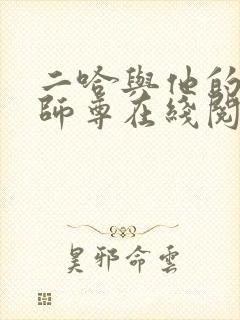 二哈與他的
師尊在綫閱
昊邪命雲